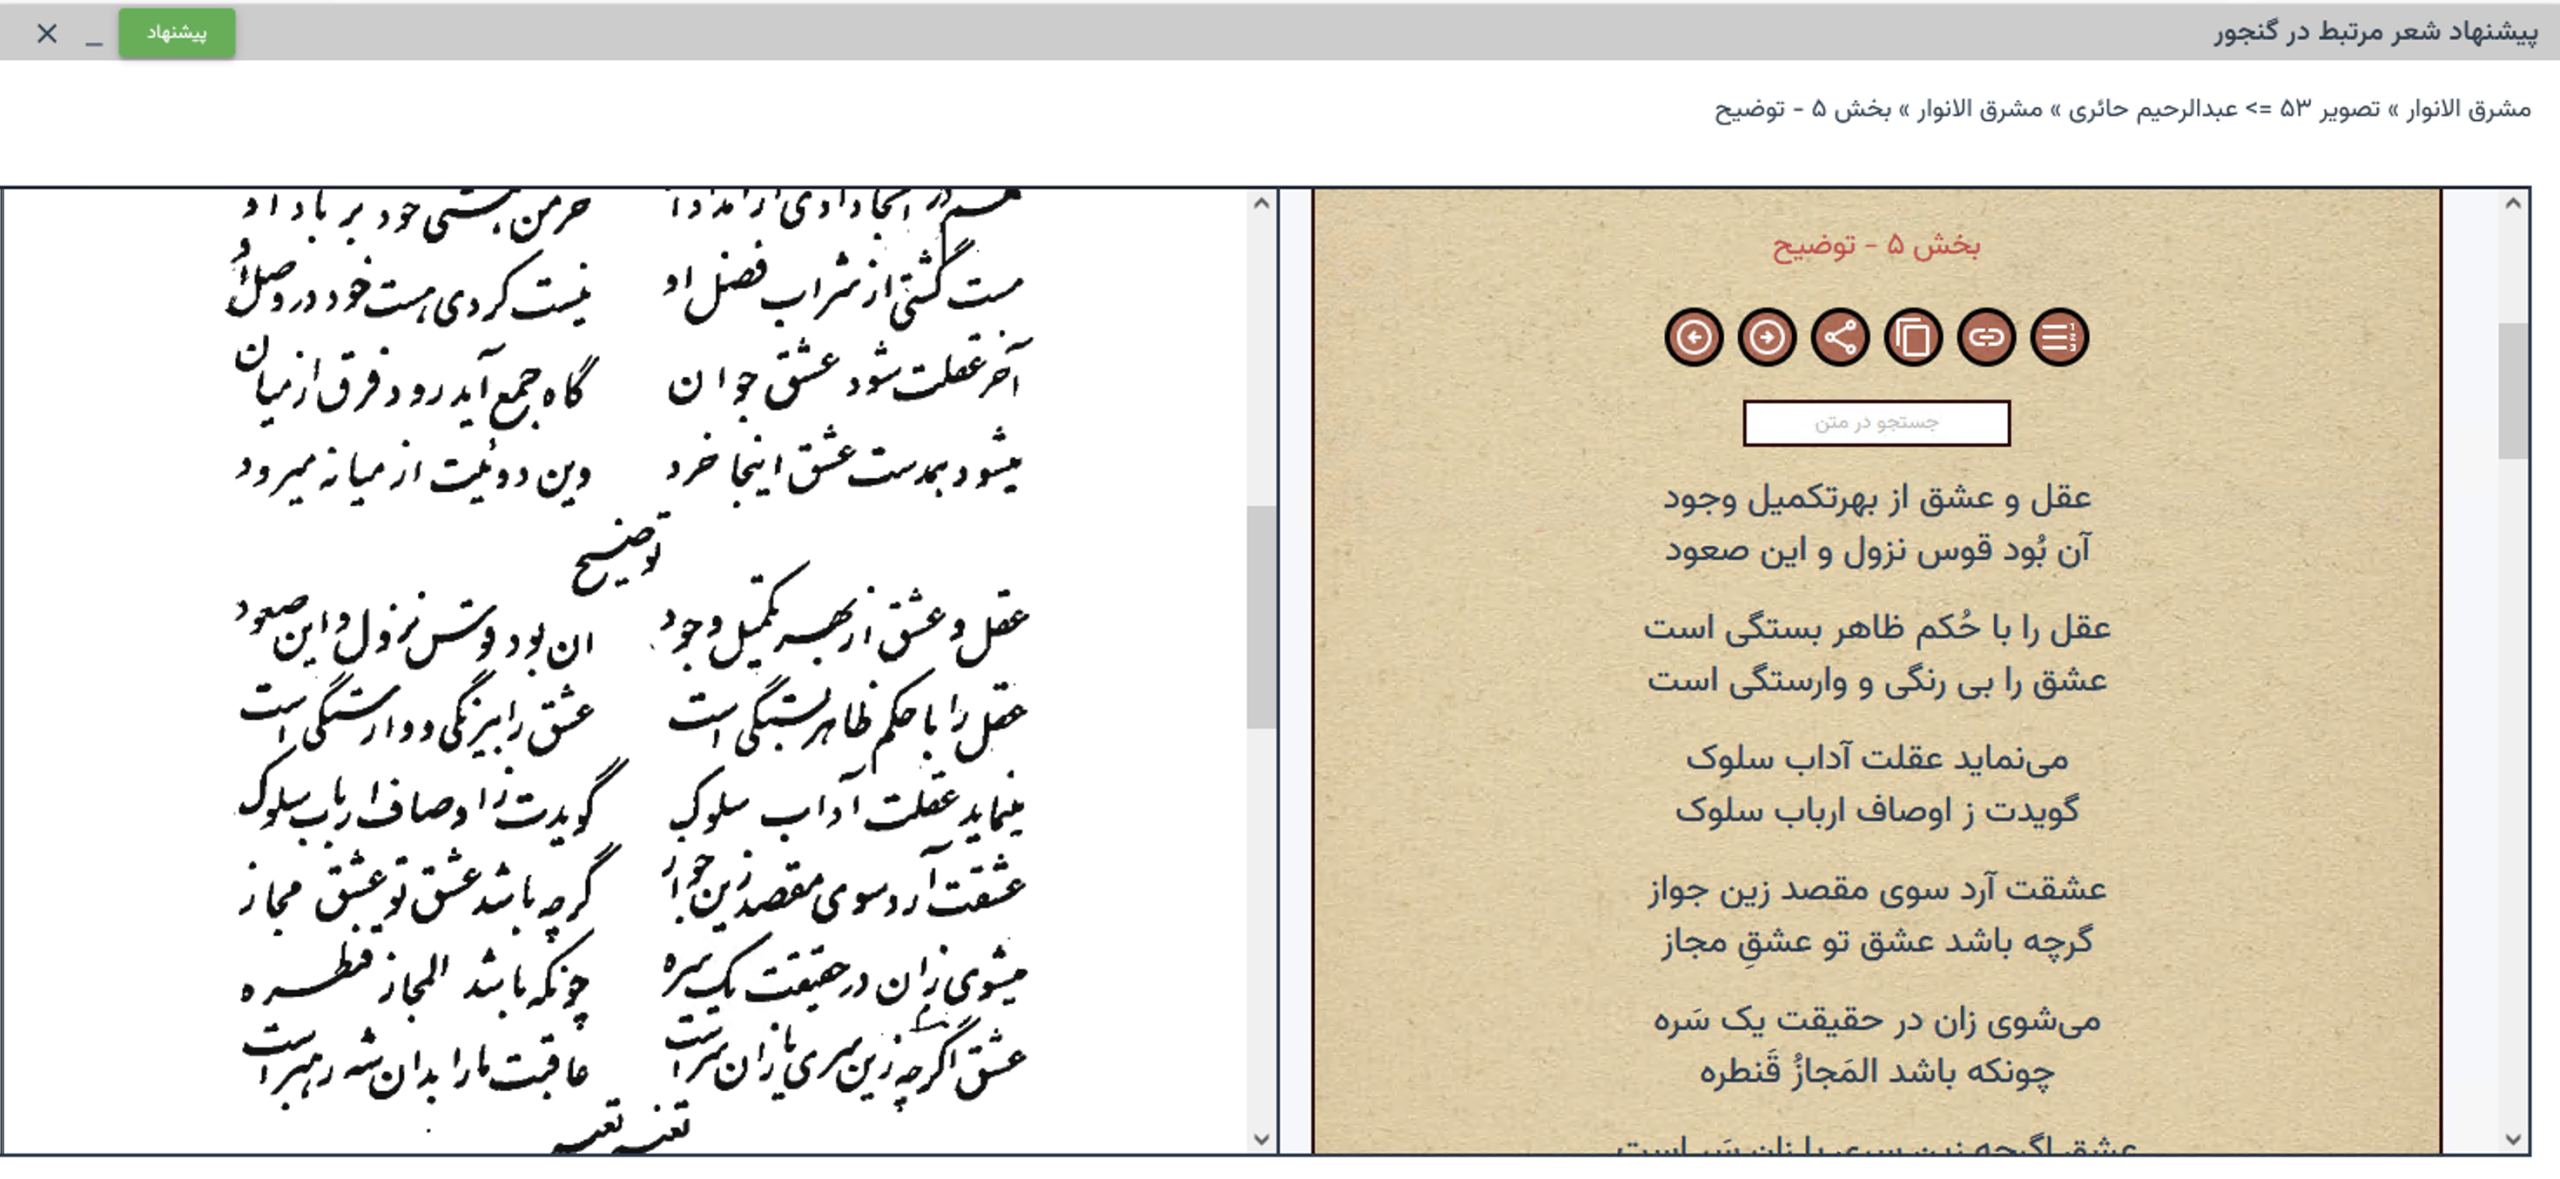 پیشنهاد شعر مرتبط در گنجور
پیشنهاد
مشرق الانوار » تصویر ۵۳ => عبدالرحیم حائری » مشرق الانوار » بخش ۵ - توضیح
بخش ۵ - توضیح
جستجو در متن
عقل و عشق از بهرتکمیل وجود
آن بُود قوس نزول و این صعود
عقل را با حُکم ظاهر بستگی است
عشق را بی رنگی و وارستگی است
می‌نماید عقلت آداب سلوک
گویدت ز اوصاف ارباب سلوک
عشقت آرد سوی مقصد زین جواز
گرچه باشد عشق تو عشقِ مجاز
می‌شوی زان در حقیقت یک سَره
چونکه باشد المَجازُ قَنطره
عشق اگرچه زین سری یا زان سَر است
خرمن هستی خود بر باد داد
مست گشتی از شراب فضل او
نیست کردی هست خود در وصل او
آخر عقلت شود عشق جوان
گاه جمع آید رود فرق از میان
میشود همدست عشق اینجا خرد
وین دوئیت از میانه میرود
توضیح
عقل و عشق از بهر تکمیل وجود
ان بود قوس نزول و این صعود
عقل را با حکم ظاهر بستگی است
عشق را بیرنگی و وارستگی است
مینماید عقلت آداب سلوک
گویدت ز اوصاف ارباب سلوک
عشقت آرد سوی مقصد زین جواز
گرچه باشد عشق تو عشق مجاز
میشوی زان در حقیقت یک سره
چونکه باشد المجاز قنطره
عشق اگرچه زین سری یا زان سر است
عاقبت ما را بدان شه رهبر است